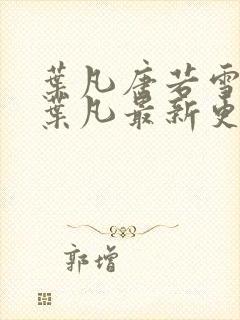 葉凡唐若雪
葉凡最新更
郭增